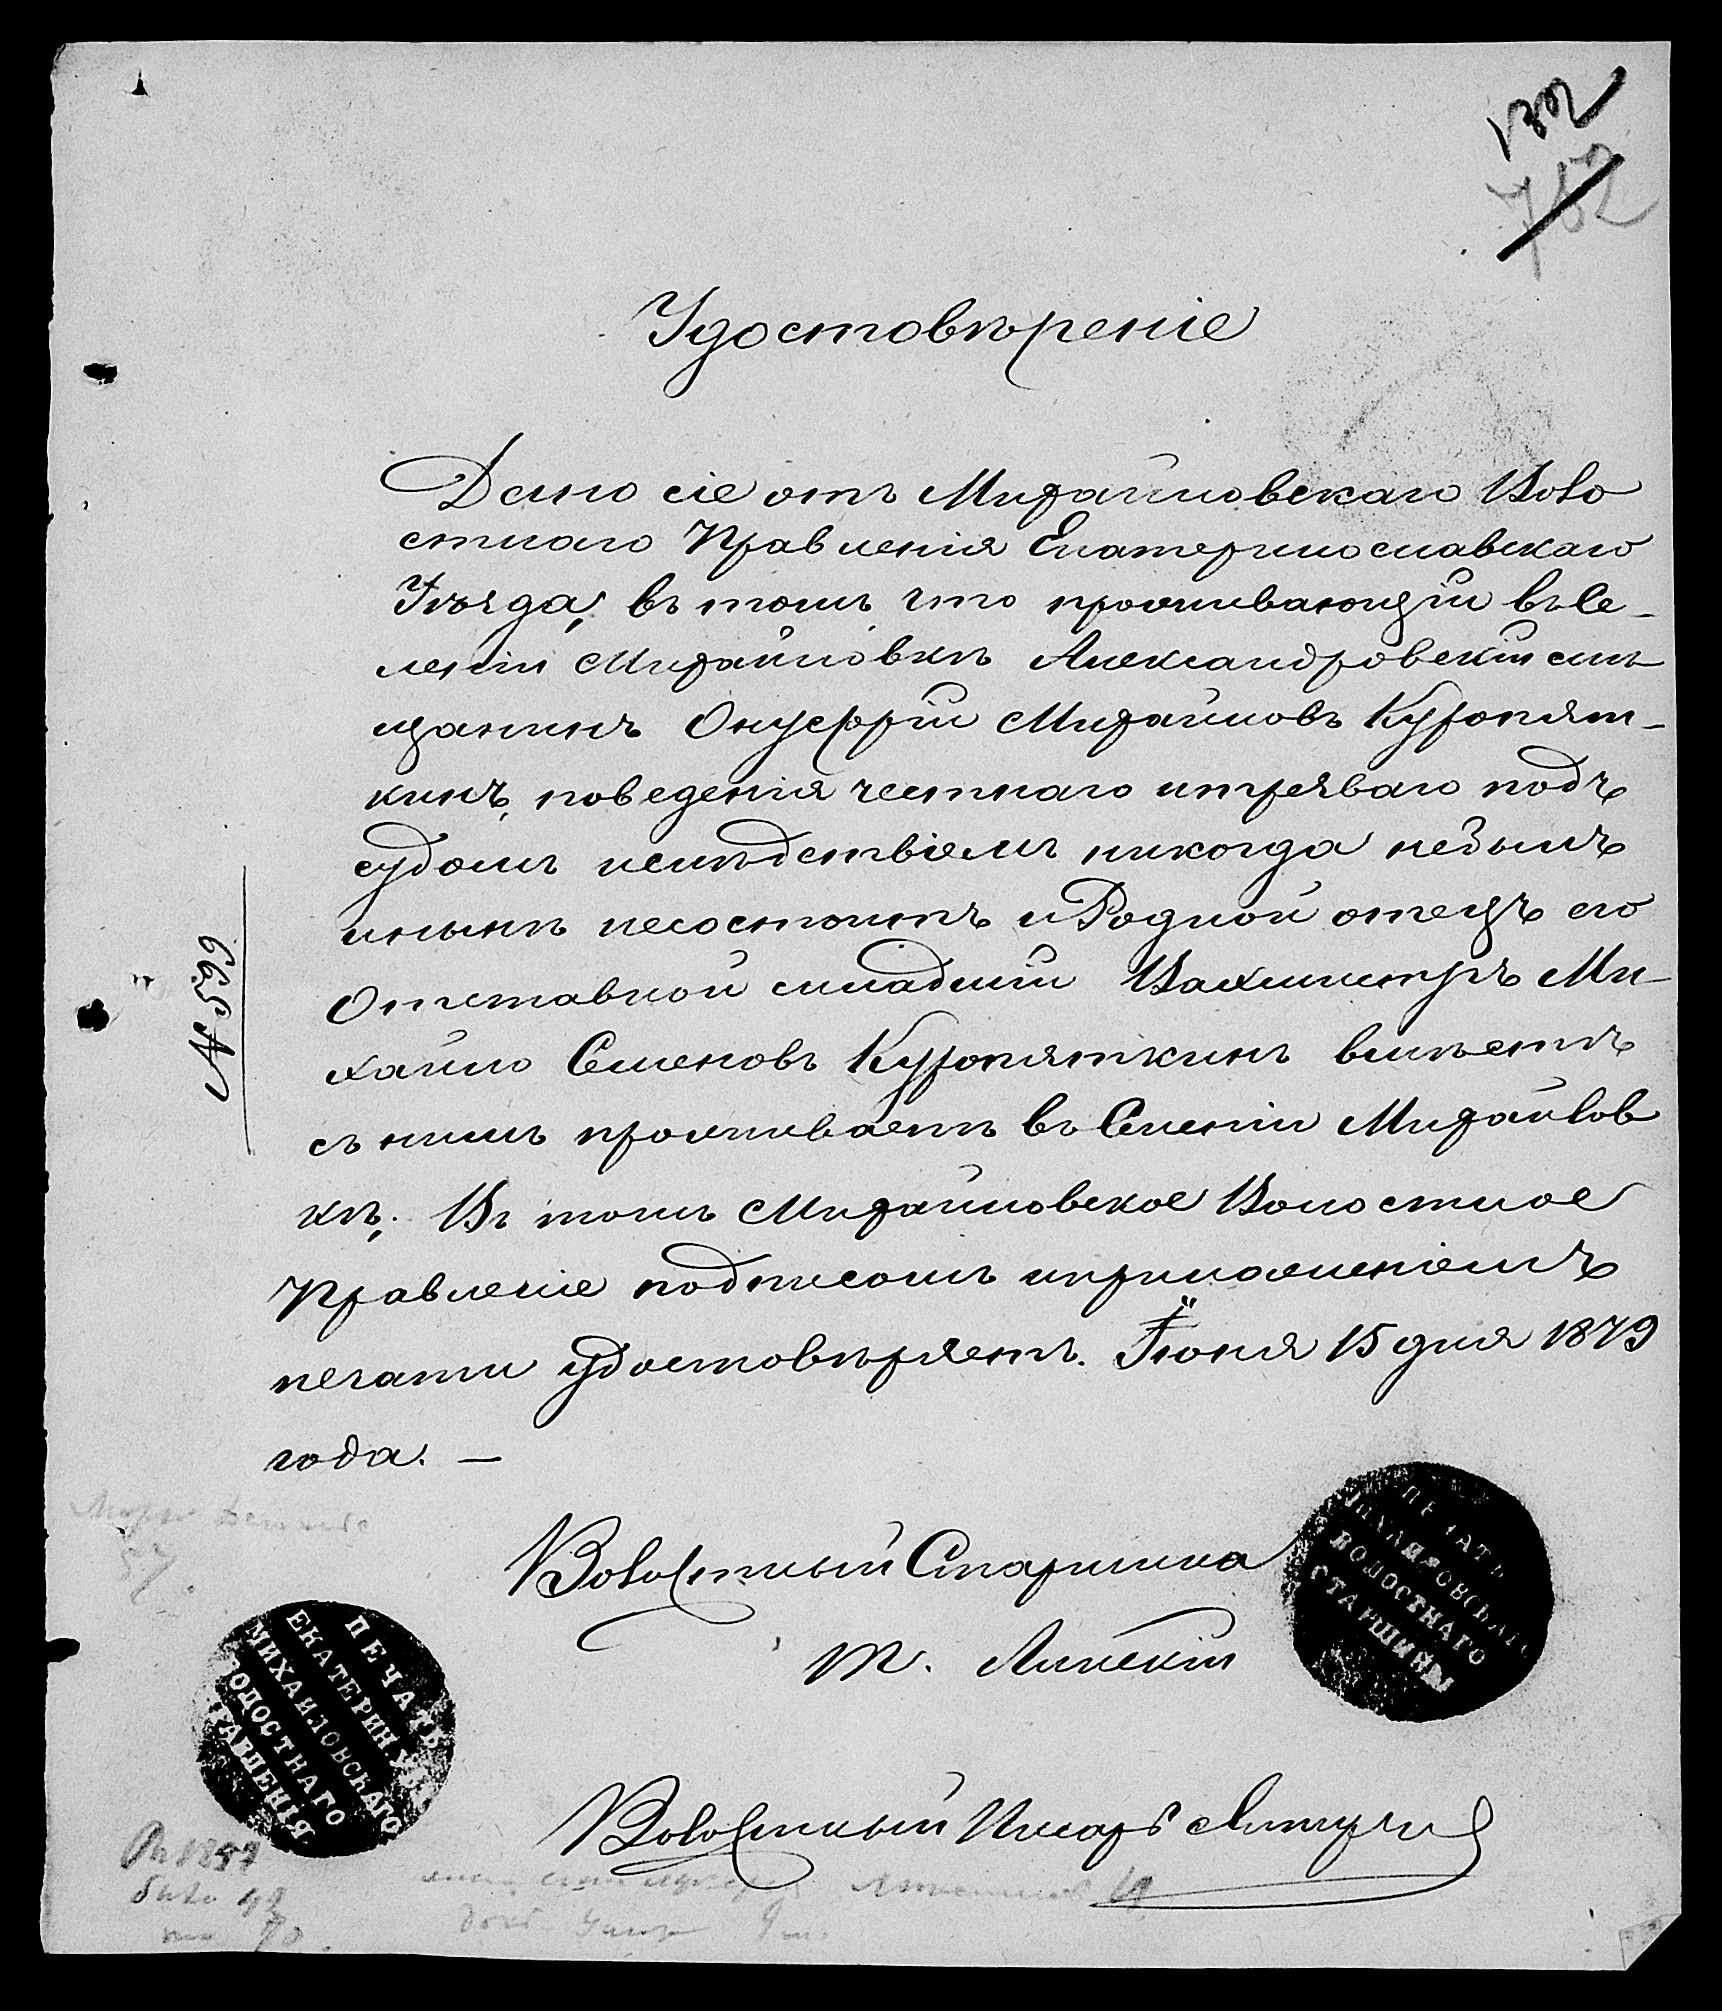 132
782
Удостовѣреніе
Дано сіе отъ Михайловскаго Воло
стнаго Правленія Екатеринославскаго
Уѣзда, въ томъ что проживающій въ Се-
леніи Михайловкѣ Александровскій мѣ
щанинъ Онуфрій Михайловъ Куропят-
кинъ, поведенія честнаго итрезваго подъ
судомъ ислѣдствіемъ никогда небылъ
инынѣ несостоитъ и Родной отецъ его
Отставной младшій Вахмистръ Ми-
хайло Семеновъ Куропяткинъ вмѣстѣ
съ нимъ проживаетъ въ Селеніи Михайлов
кѣ, Въ томъ Михайловское Волостное
Правленіе подписомъ иприложеніемъ
печати удостовѣряетъ. Іюня 15 дня 1879
года. —
№ 599
Волостный Старшина
Волостный Писарь
ПЕЧАТЬ
МИХАЙЛОВСКАГО
ВОЛОСТНАГО
СТАРШИНЫ
ПЕЧАТЬ
ЕКАТЕРИН. У.
МИХАЙЛОВСКАГО
ВОЛОСТНАГО
ПРАВЛЕНІЯ